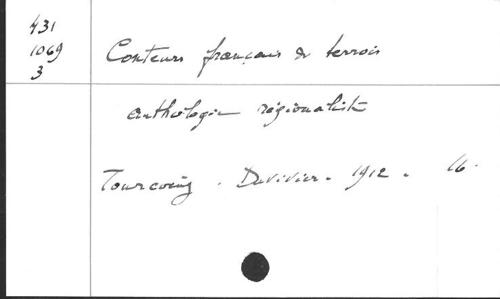 431
1069
3
Conteurs français du terroir
anthologie régionaliste
Tourcoing . Duvivier . 1912 . 16